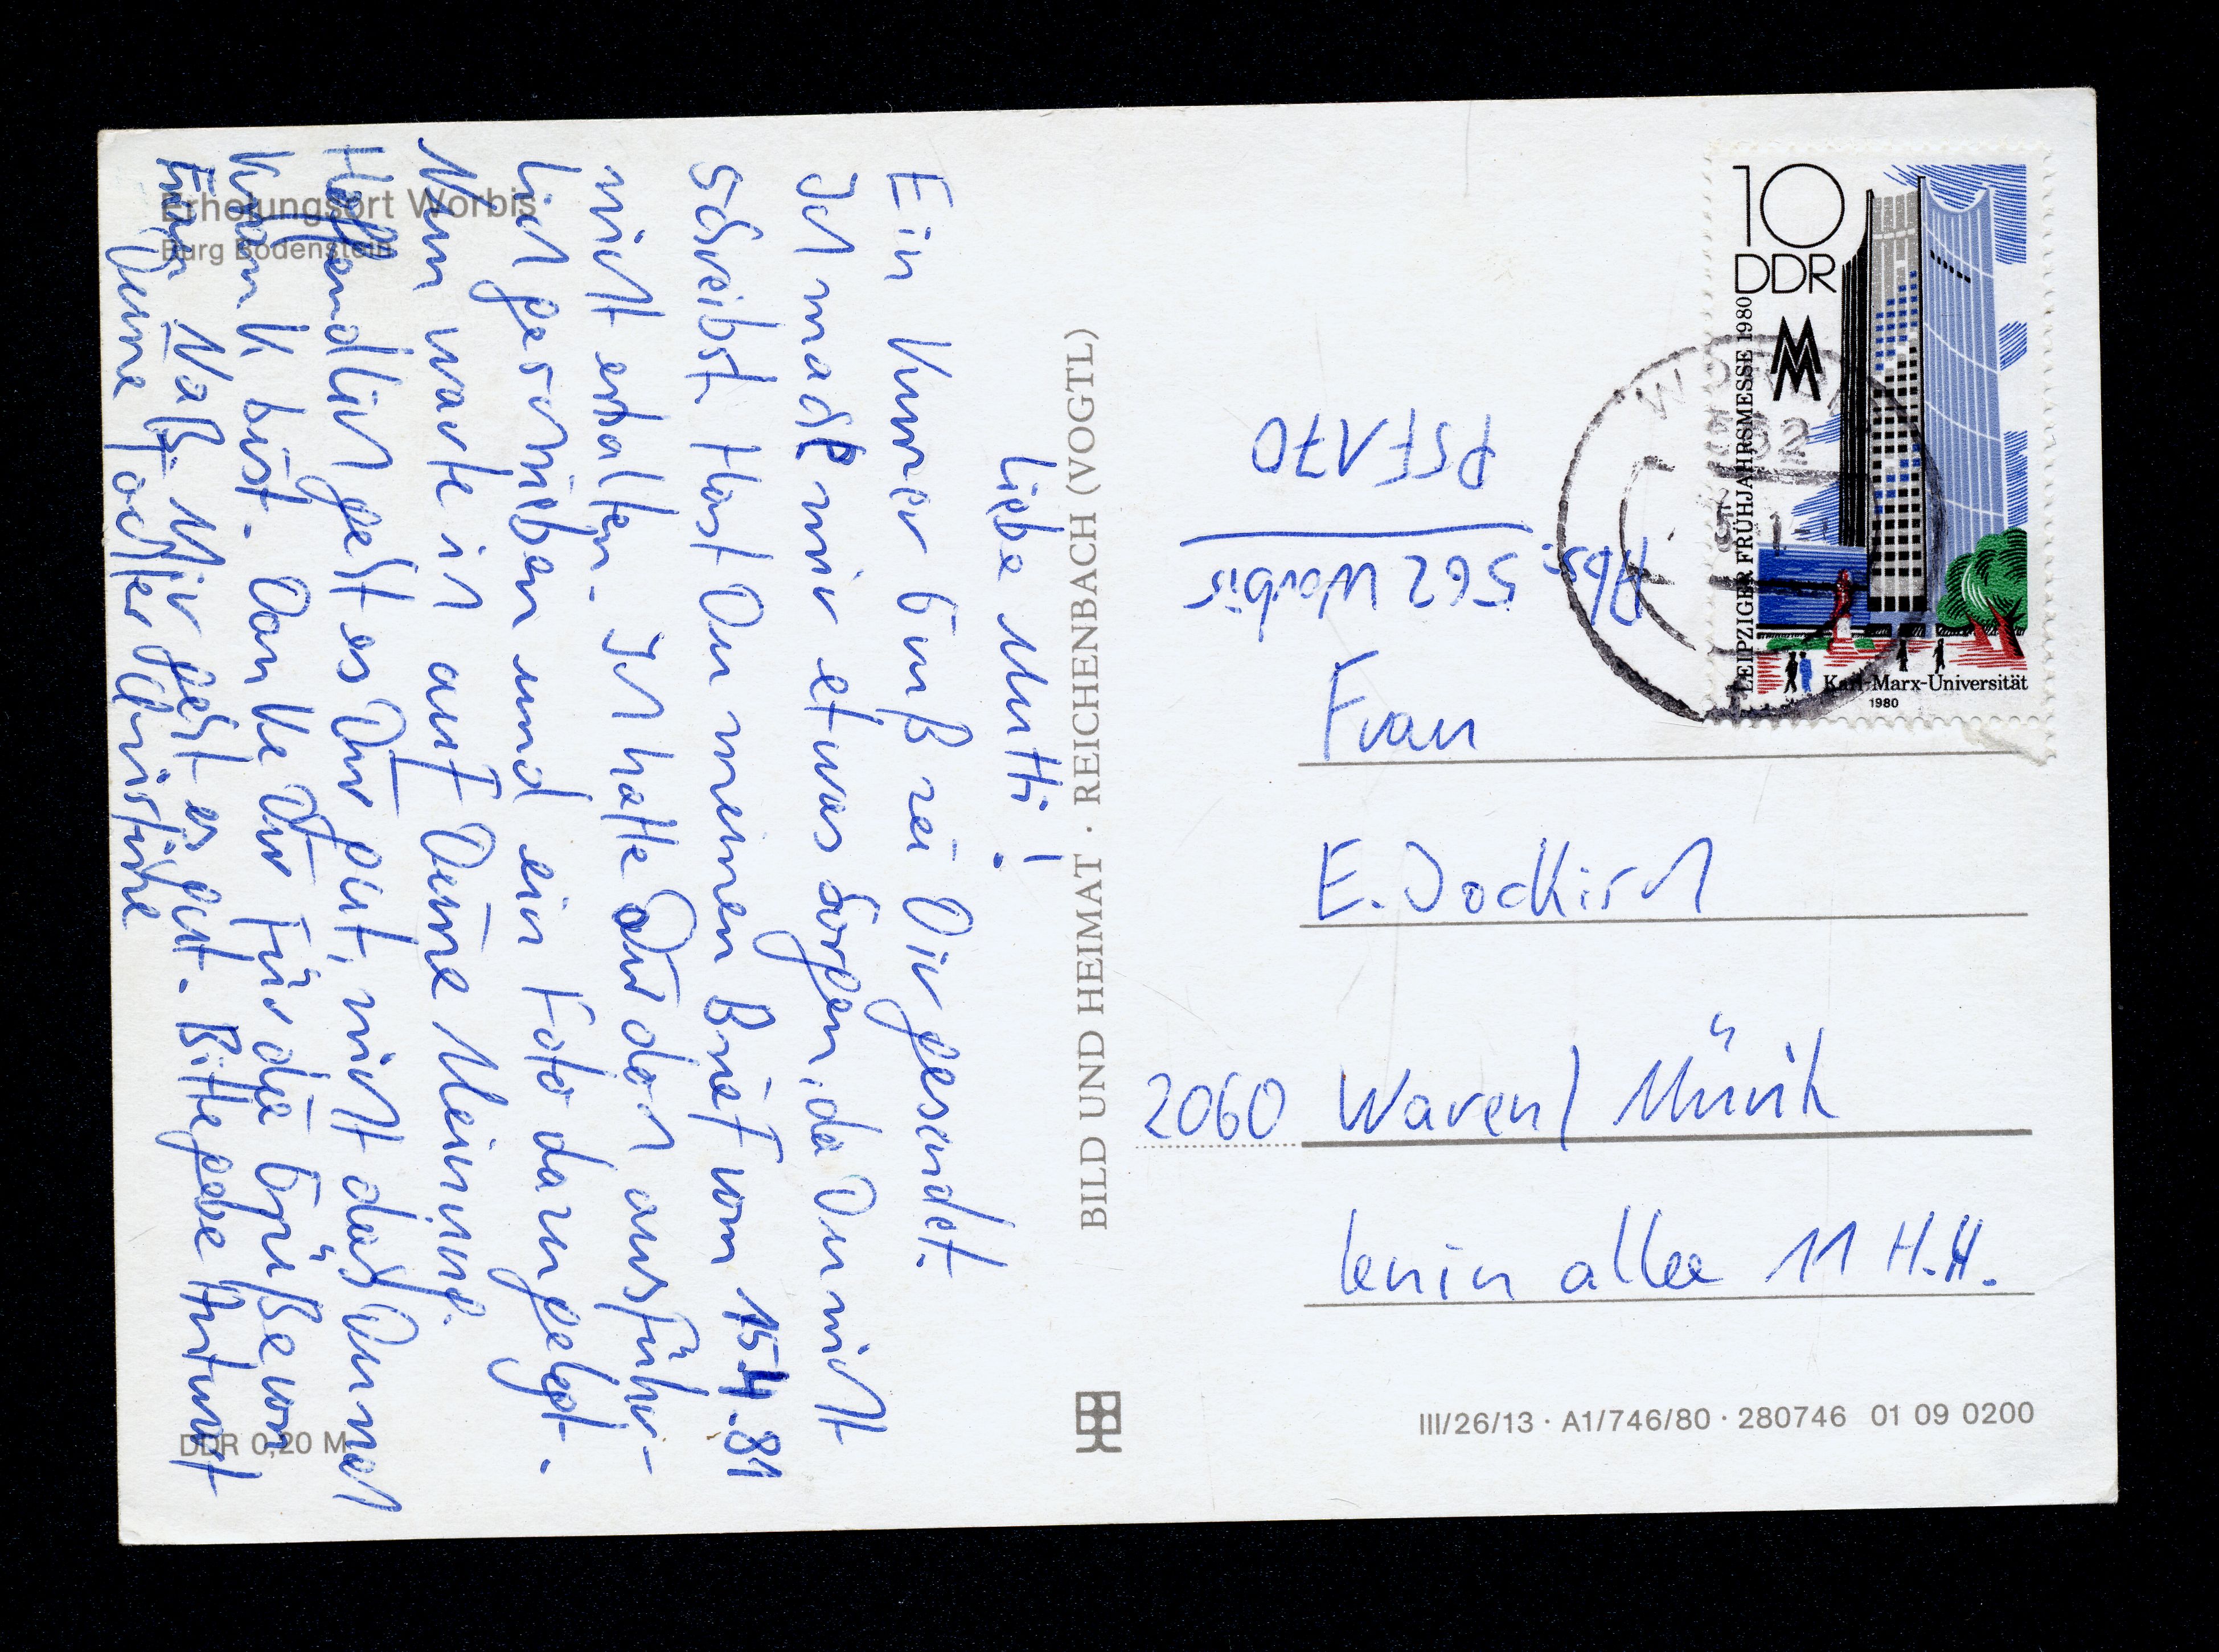 Erholungsort Worbis
Burg Bodenstein
Liebe Mutti!
Ein Kurzer Gruß zu Dir gesendet.
Ich mache mir etwas Sorgen, da Du nicht
schreibst. Hast Du meinen Brief vom 15.4.81
nicht erhalten. Ich hatte Dir doch ausführ-
lich geschrieben und ein Foto dazu gelegt.
Nun warte ich auf Deine Meinung.
Hoffendlich geht es Dir gut, nicht das Du noch
krank bist. Danke Dir für die Grüße von
Frau Naß. Mir geht es gut. Bitte gebe Antwort
Deine Tochter Christine
DDR 0,20 M
BILD UND HEIMAT · REICHENBACH (VOGTL)
10
DDR
MM
LEIPZIGER FRÜHJAHRSMESSE 1980
Karl-Marx-Universität
1980
WORBIS
562
Abs. 562 Worbis
PSF 170
Frau
E. Jockisch
2060 Waren/ Müritz
Lenin allee 11 H.H.
III/26/13 · A1/746/80 · 280746 01 09 0200